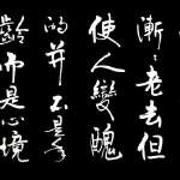 漸漸老去但
使人變醜
的並不是年
齡而是心境